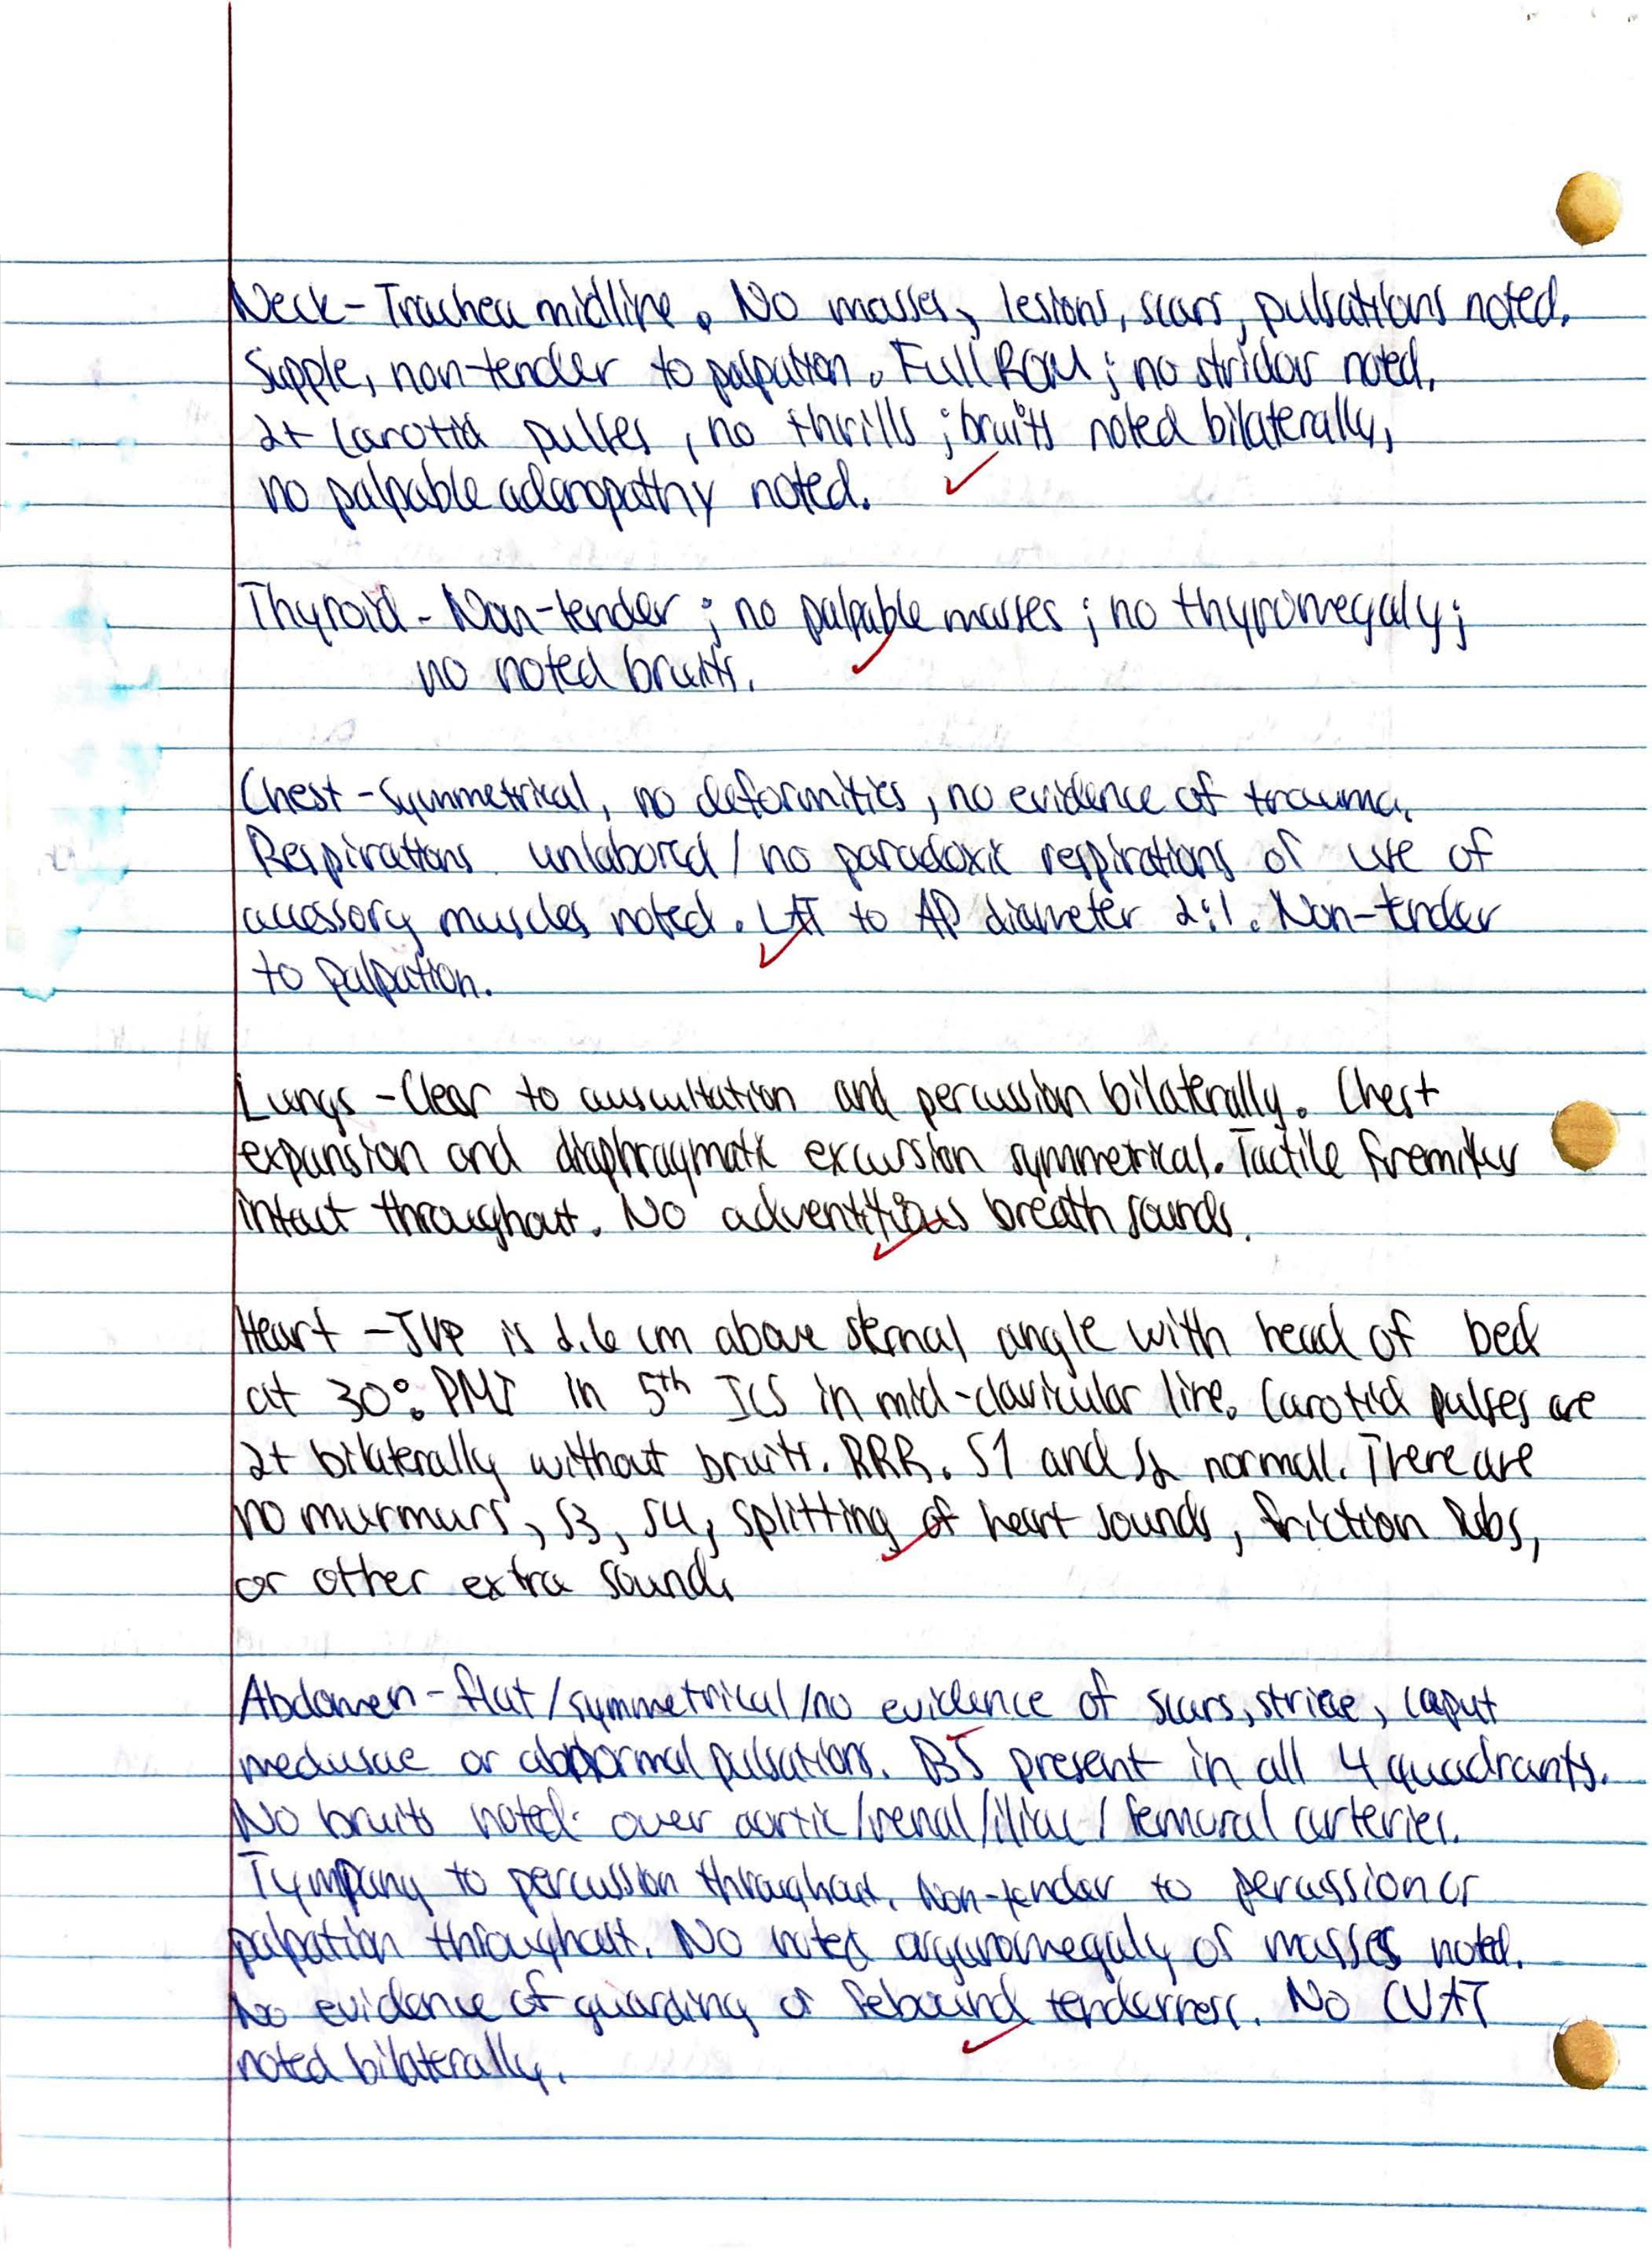 Neck - Trachea midline. No masses, lesions, scars, pulsations noted.
Supple, non-tender to palpation. Full ROM; no stridor noted.
2+ Carotid pulses, no thrills; bruits noted bilaterally,
no palpable adenopathy noted.
Thyroid - Non-tender; no palpable masses; no thyromegaly;
no noted bruits.
Chest - Symmetrical, no deformities, no evidence of trauma.
Respirations unlabored / no paradoxic respirations or use of
accessory muscles noted. LAT to AP diameter 2:1. Non-tender
to palpation.
Lungs - Clear to auscultation and percussion bilaterally. Chest
expansion and diaphragmatic excursion symmetrical. Tactile fremitus
intact throughout. No adventitious breath sounds.
Heart - JVP is 2.6 cm above sternal angle with head of bed
at 30°. PMI in 5th ICS in mid-clavicular line. Carotid pulses are
2+ bilaterally without bruits. RRR. S1 and S2 normal. There are
no murmurs, S3, S4, splitting of heart sounds, friction rubs,
or other extra sounds
Abdomen - flat/symmetrical/no evidence of scars, striae, caput
medusae or abnormal pulsations. BS present in all 4 quadrants.
No bruits noted over aortic/renal/iliac/femoral arteries.
Tympany to percussion throughout. Non-tender to percussion or
palpation throughout. No noted organomegaly or masses noted.
No evidence of guarding or rebound tenderness. No CVAT
noted bilaterally.